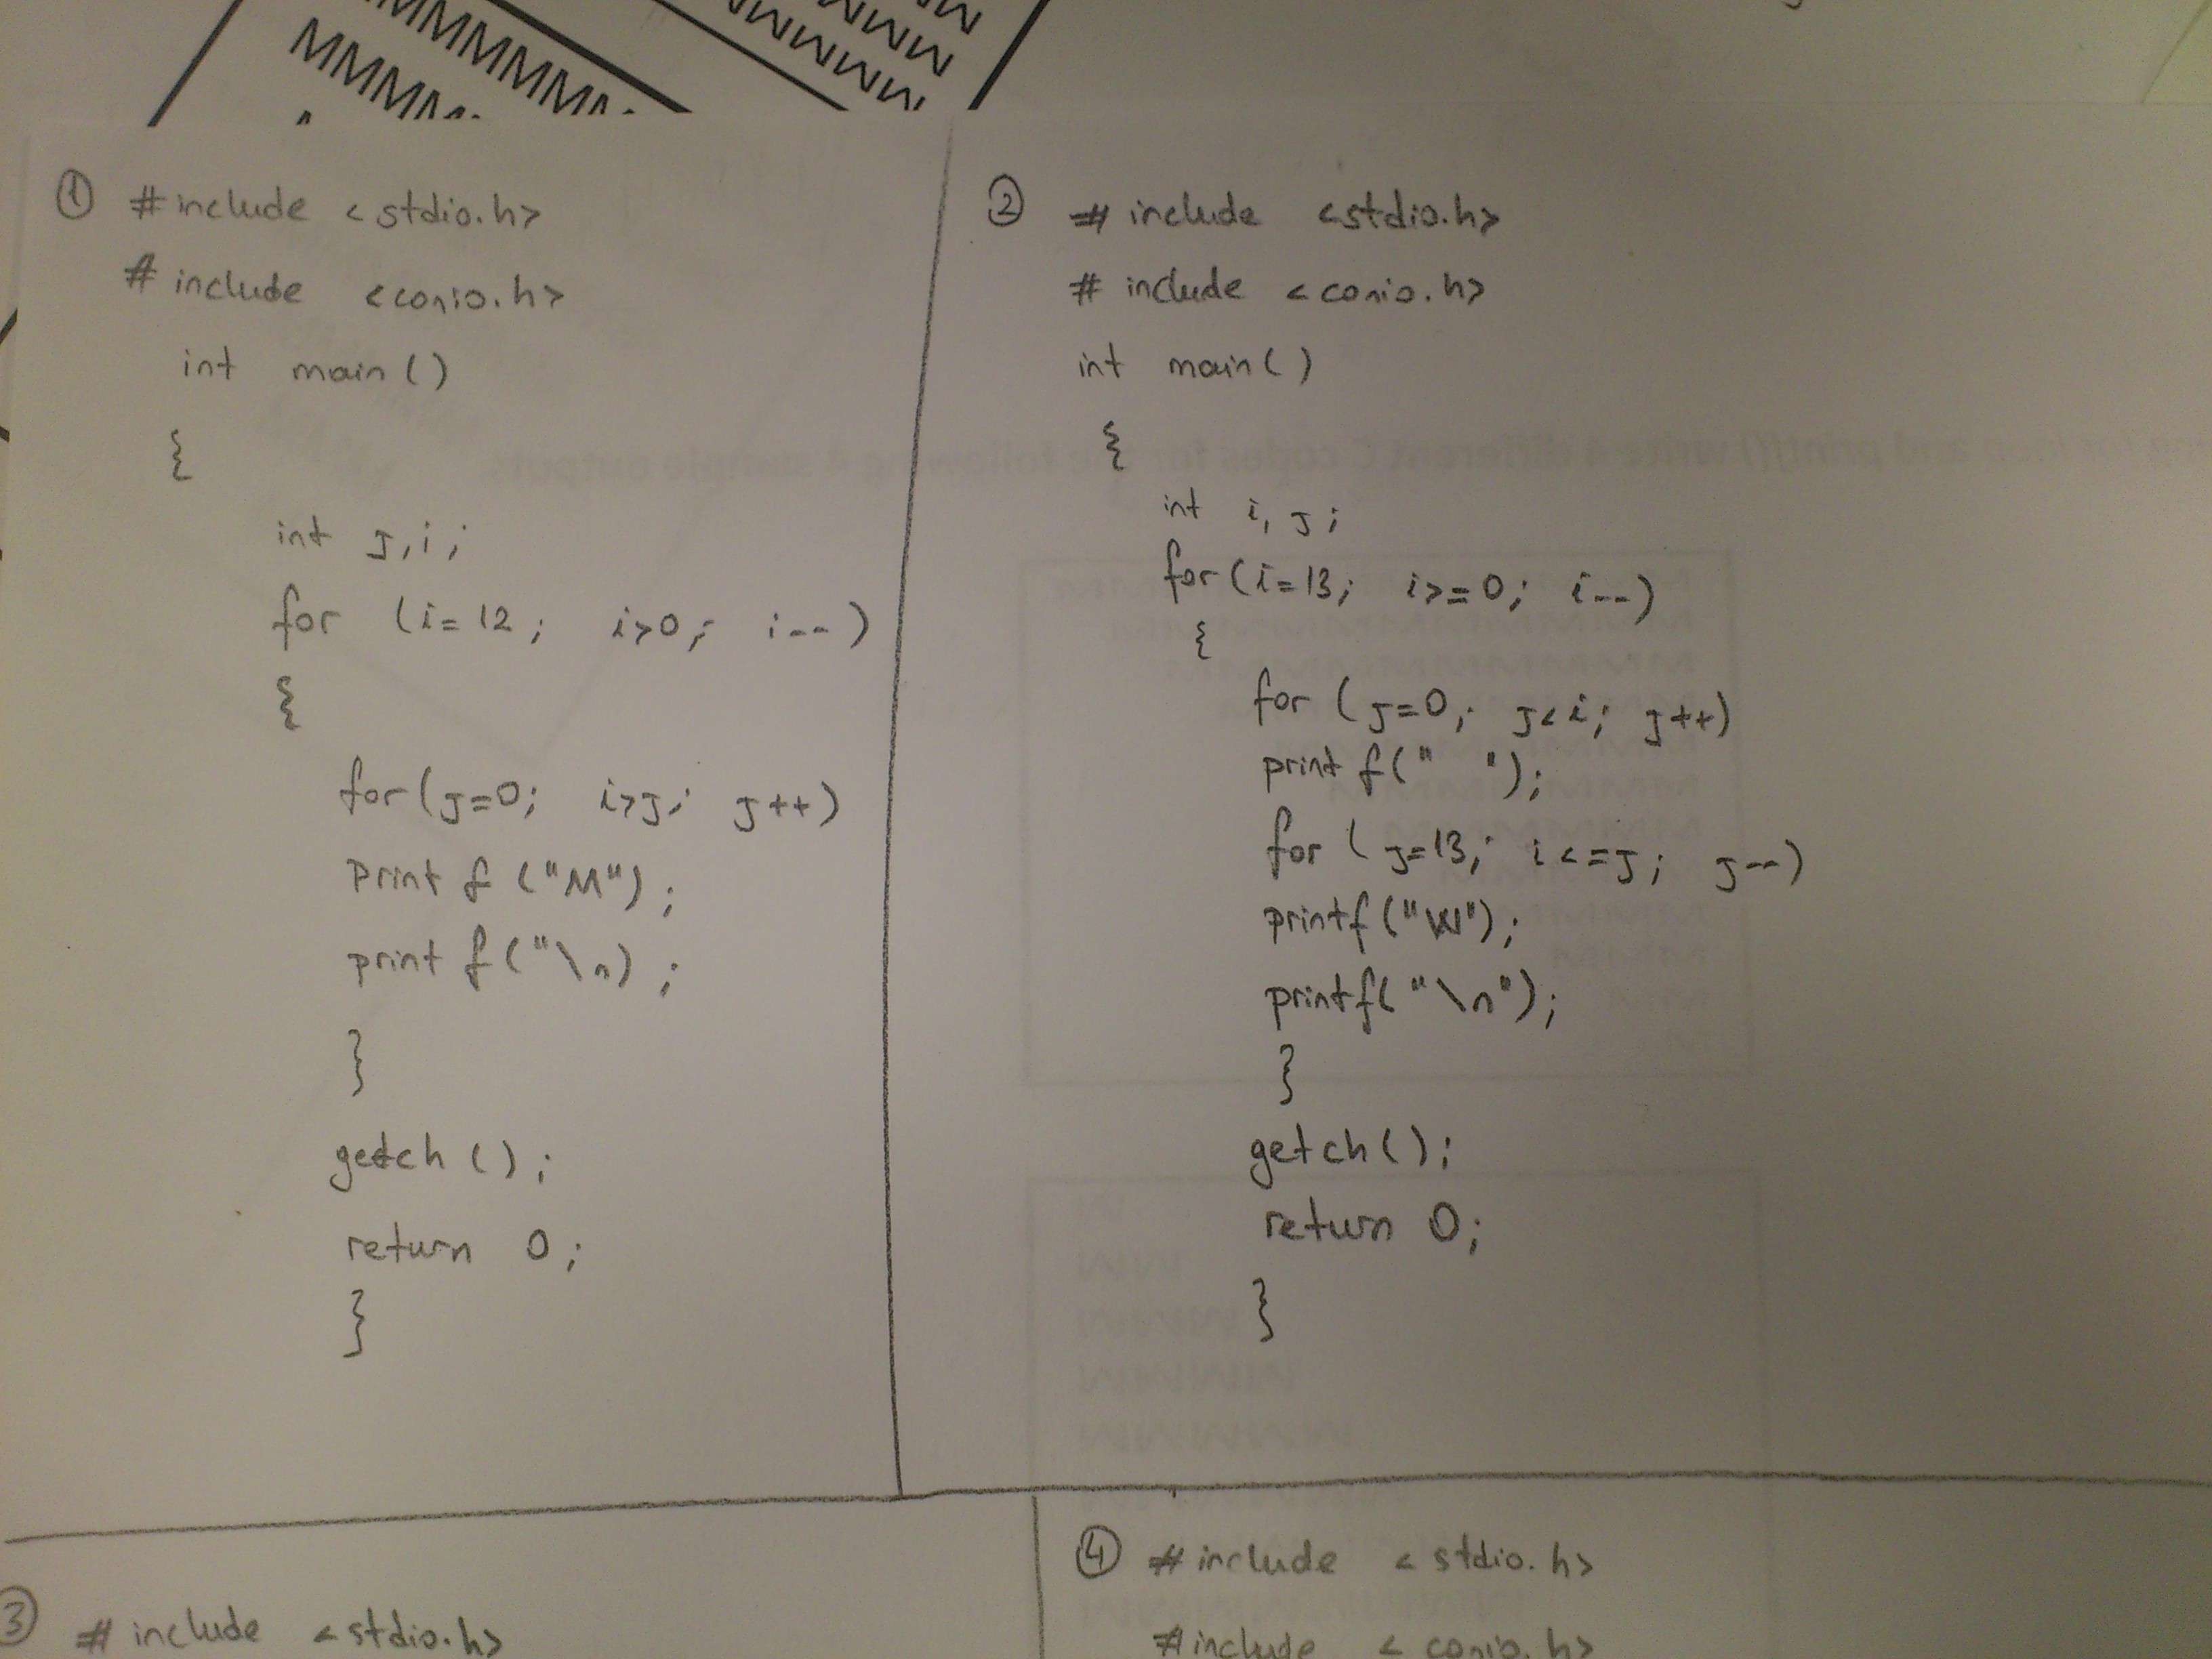 ① #include <stdio.h>
#include <conio.h>
int main()
{
int j,i;
for (i=12; i>0; i--)
{
for(j=0; i>j; j++)
printf ("M");
printf ("\n);
}
getch ();
return 0;
}
② #include <stdio.h>
#include <conio.h>
int main()
{
int i, j;
for(i=13; i>=0; i--)
{
for (j=0; j<i; j++)
printf(" ");
for (j=13; i<=j; j--)
printf("W");
printf("\n");
}
getch();
return 0;
}
③ #include <stdio.h>
④ #include <stdio.h>
#include <conio.h>